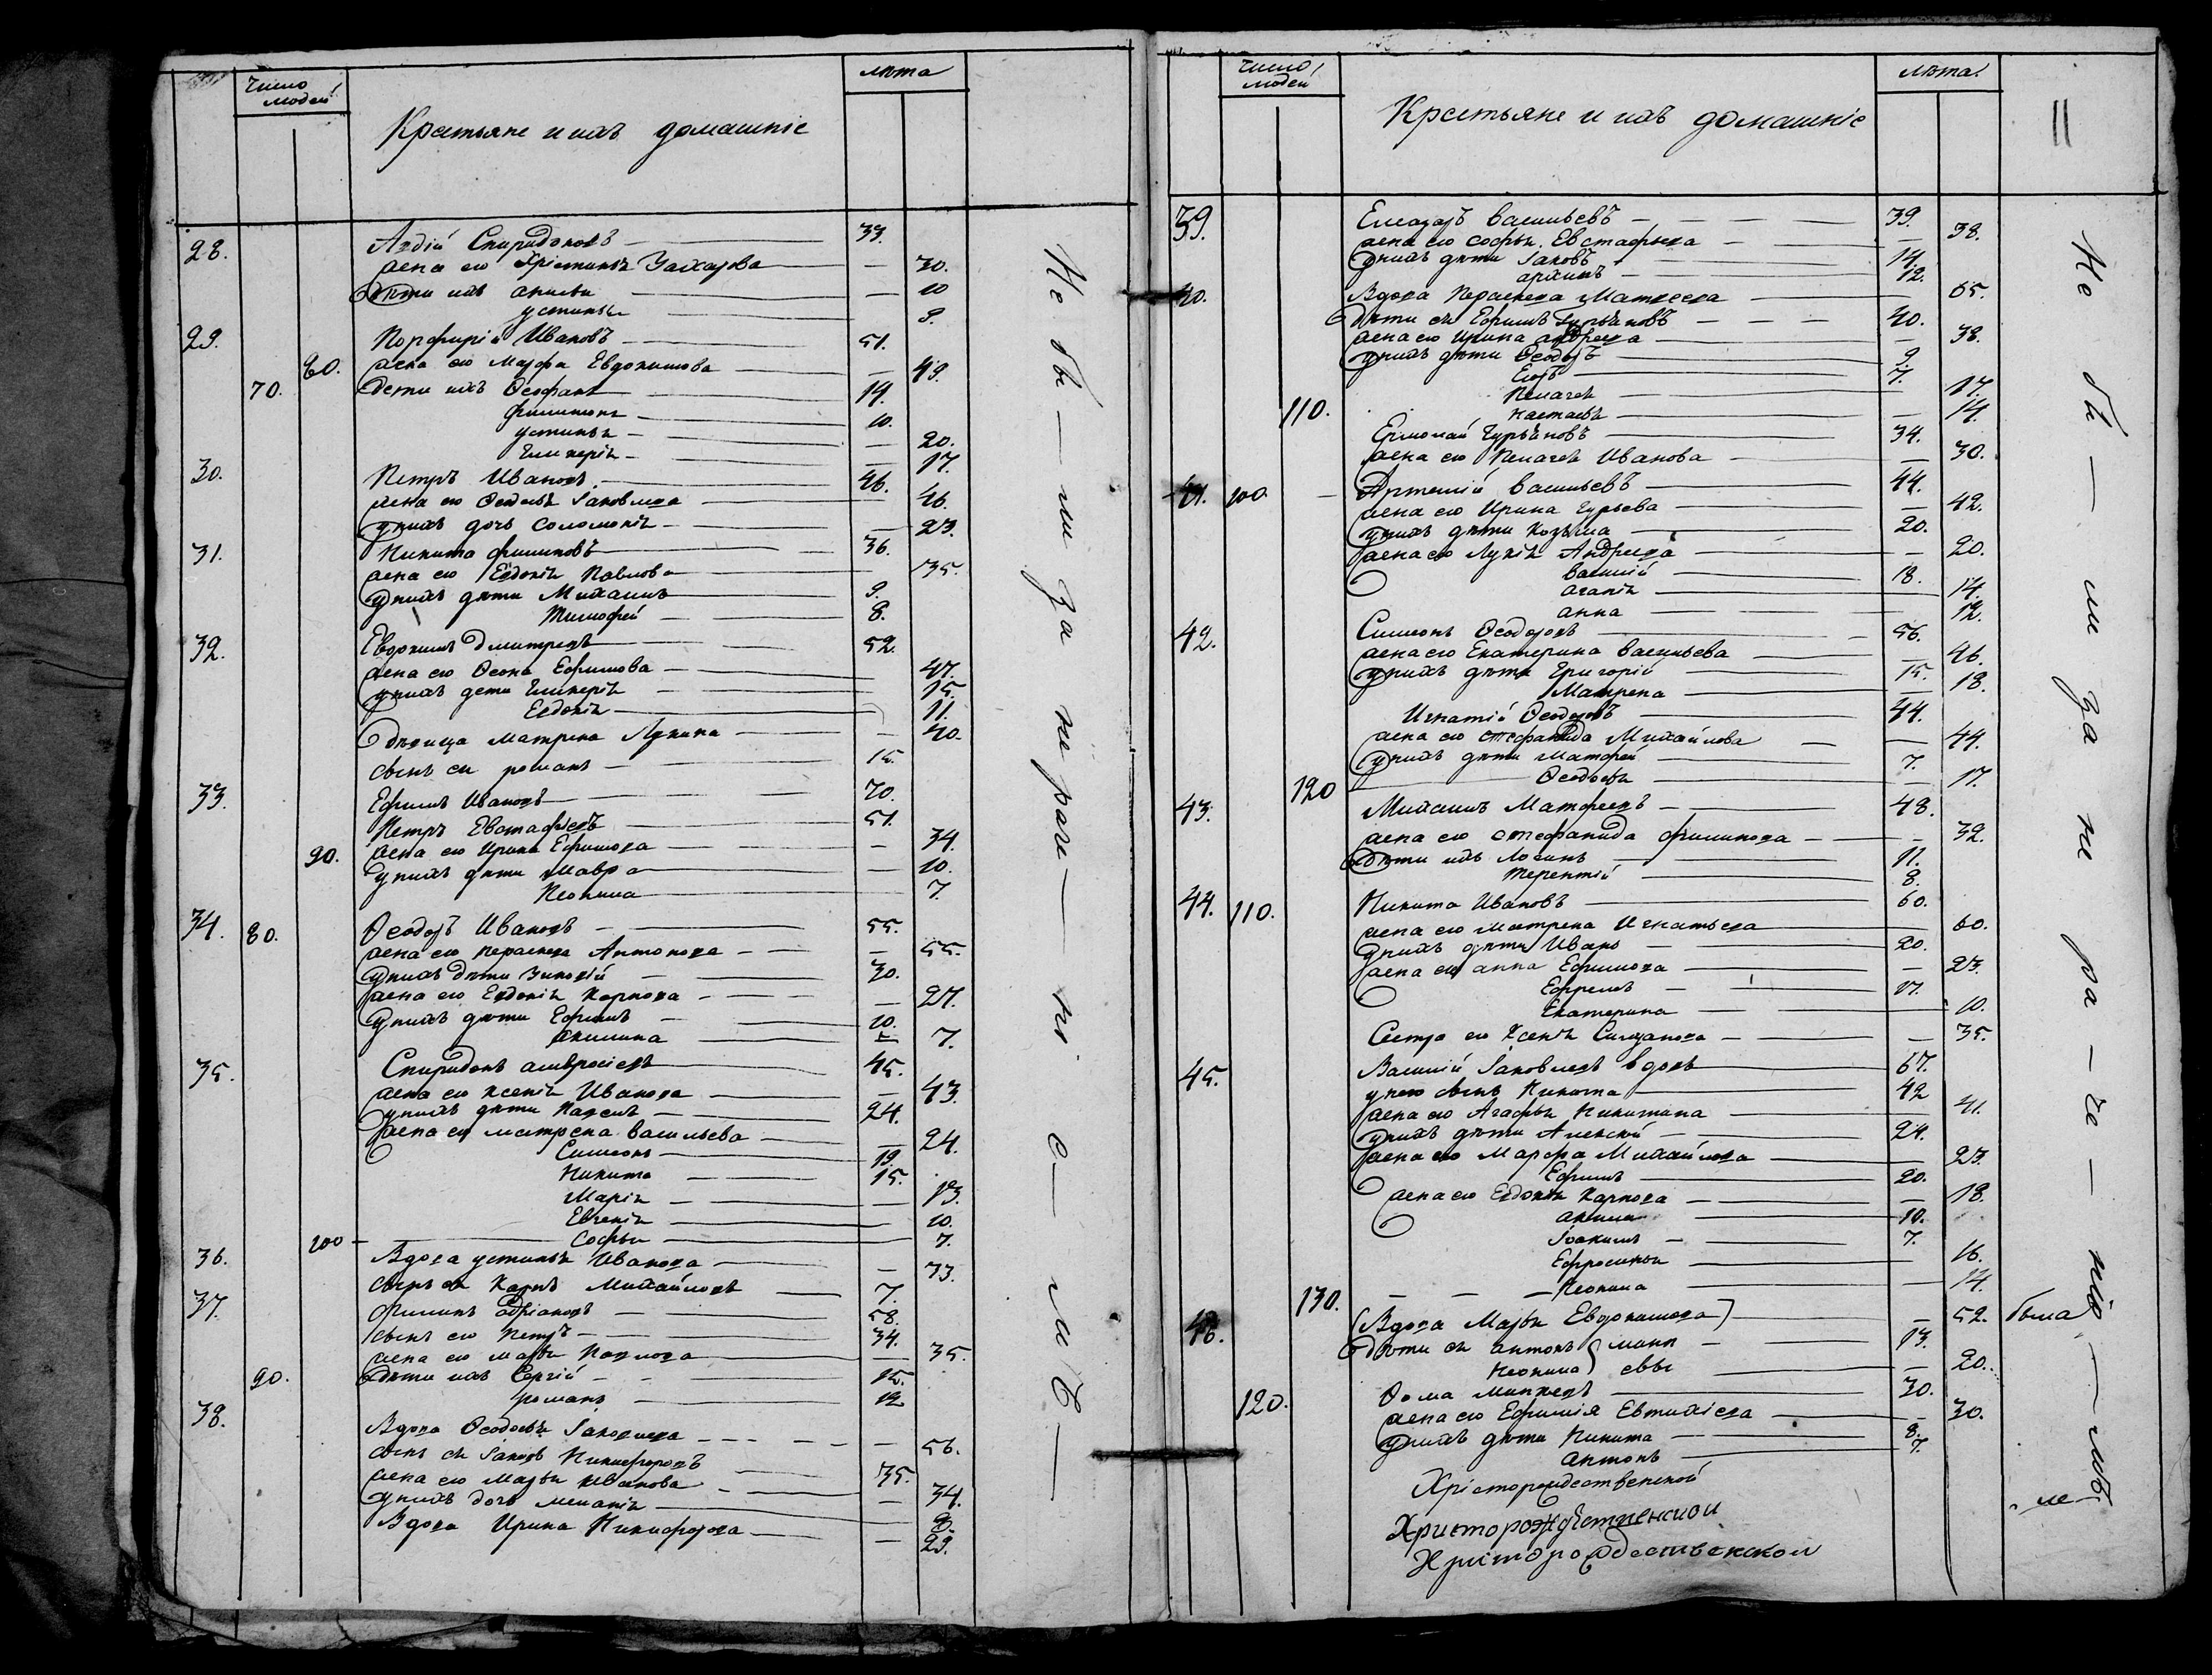 Число людей
лѣта
Крестьяне и ихъ домашніе
28. Авдій Спиридоновъ — 33.
жена его Хрістинья Захарова — 30.
Дѣти ихъ — 10
устинья — 8.
29. Порфирій Ивановъ — 51.
60. жена его Марфа Евдокимова — 49.
70. Дети ихъ Ѳеофанъ — 14.
Филимонъ — 10.
устинья — 20.
Гликерія — 17.
30. Петръ Ивановъ — 46.
жена его Ѳедосья Іаковлева — 46.
у нихъ дочь Соломонія — 23.
31. Никита Филиповъ — 36.
жена его Евдокія Павлова — 35.
у нихъ дѣти Михаилъ — 9.
Тимофей — 8.
32. Евдокимъ Дмитревъ — 52.
жена его Ѳеона Ефимова — 47.
у нихъ дети Гликерія — 15.
Евдокія — 11.
Дѣвица матрена Лукина — 40.
сынъ ея романъ — 15.
33. Ефимъ Ивановъ — 70.
Петръ Евстафьевъ — 51.
90. жена его Ирина Ефимова — 34.
у нихъ дѣти Мавра — 10.
Неонила — 7.
34. 80. Ѳеодоръ Ивановъ — 55.
жена его параскева Антонова — 55.
у нихъ дѣти Зиновій — 30.
жена его Евдокія Карпова — 27.
у нихъ дѣти Ефимъ — 10.
акилина — 7.
35. Спиридонъ амвросіевъ — 45.
жена его Ксенія Иванова — 43.
у нихъ дѣти — 24.
жена его матрена васильева — 24.
Симеонъ — 19.
Никита — 15.
Марія — 13.
Евгенія — 10.
100 — Софья — 7.
36. Вдова устинья Иванова — 73.
сынъ ея Карпъ Михайловъ — 7.
37. Филипъ Адріановъ — 58.
сынъ его Петръ — 34.
жена его марья Павлова — 35.
90. Дѣти ихъ Сергій — 15.
романъ — 12
38. Вдова Ѳеодосья Іаковлева — 56.
сынъ ея Іаковъ Никифоровъ — 35.
жена его Марья Иванова — 34.
у нихъ дочь меланія — 8.
Вдова Ирина Никифорова — 29.
Не бы — ли за нераче — ні е — мъ —
Число людей
лѣта
11
Крестьяне и ихъ домашніе
39. Елеазаръ васильевъ — 39.
жена его софья Евстафьева — 38.
у нихъ дѣти Іаковъ — 14.
архипъ — 12.
40. Вдова Параскева Матвеева — 65.
Дѣти ея Ефимъ Гурьяновъ — 40.
жена его Ирина андреева — 38.
у нихъ дѣти Ѳеодоръ — 9.
Егоръ — 7.
Пелагея — 17.
110. Настасья — 14.
Ермолай Гурьяновъ — 34.
жена его Пелагея Иванова — 30.
41. 100. Артемій васильевъ — 44.
жена его Ирина Гурьева — 42.
у нихъ дѣти Козьма — 20.
жена его Лукія Андреева — 20.
василій — 18.
агапія — 14.
анна — 12.
42. Симеонъ Ѳеодоровъ — 56.
жена его Екатерина васильева — 46.
у нихъ дѣти Григорій — 15.
Матрена — 18.
Игнатій Ѳеодоровъ — 44.
жена его стефанида Михайлова — 44.
у нихъ дѣти Матфей — 7.
120 Ѳеодосья — 17.
43. Михаилъ Матфеевъ — 48.
жена его стефанида Филипова — 32.
Дѣти ихъ Логинъ — 11.
терентій — 8.
44. 110. Никита Ивановъ — 60.
жена его матрена Игнатьева — 60.
у нихъ дѣти Иванъ — 20.
жена его анна Ефимова — 23.
Ефремъ — 17.
Екатерина — 10.
Сестра его Ксенія — 35.
45. Василій Іаковлевъ вдовъ — 67.
у него сынъ Никита — 42
жена его Агафья Никитина — 41.
у нихъ дѣти Алексѣй — 24.
жена его Марфа Михайлова — 23.
Ефимъ — 20.
жена его Евдокія Карпова — 18.
— 10.
Іоакимъ — 7.
Ефросинья — 16.
130. — Неонила — 14.
46. (Вдова Марья Евдокимова) — 52. была
Дѣти ея антонъ — 13.
Неонила — 20.
120. Ѳома — 30.
жена его Ефимія Евтихіева — 30.
у нихъ дѣти Никита — 8.
антонъ — 7.
Хрісторождественской
Христорождественской
Христорождественской
Не бы — ли за не ра — че — ніе — мъ